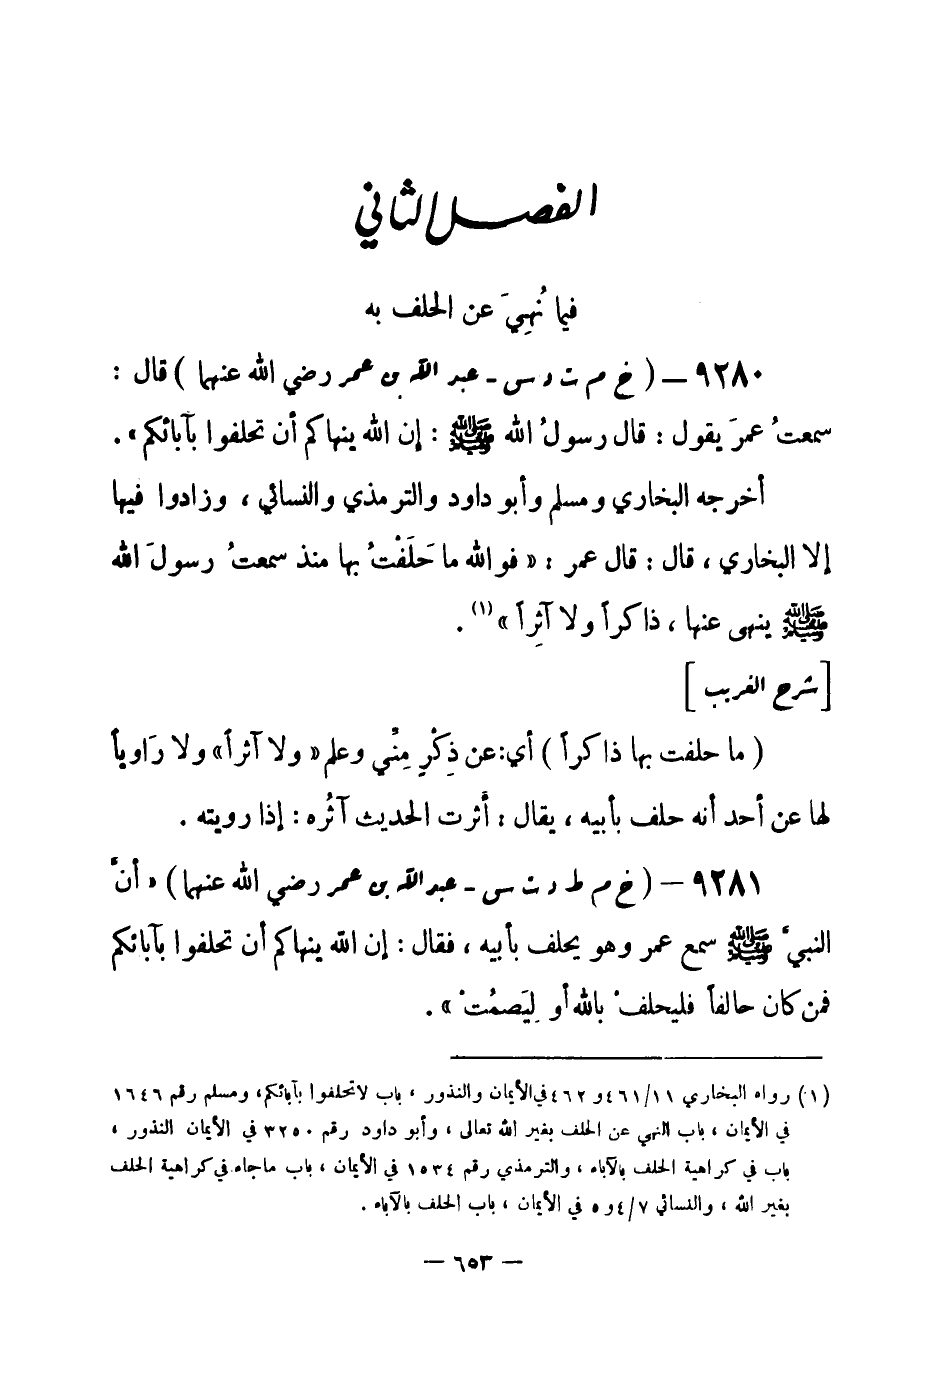 الفصل الثاني
فيما نُهِيَ عن الحلف به
٩٢٨٠ – ( خ م ت د س - عبد الله بن عمر رضي الله عنهما ) قال :
سمعتُ عمرَ يقول : قال رسولُ الله ﷺ : إن الله ينهاكم أن تحلفوا بآبائكم» .
أخرجه البخاري ومسلم وأبو داود والترمذي والنسائي ، وزادوا فيها
إلا البخاري ، قال : قال عمر : « فوالله ما حَلَفْتُ بها منذ سمعتُ رسولَ الله
ﷺ ينهى عنها ، ذاكراً ولا آثِراً »(١) .
[ شرح الغريب ]
( ما حلفت بها ذاكراً ) أي: عن ذِكْرٍ مِنِّي وعلم « ولا آثراً» ولا رَاوياً
لها عن أحد أنه حلف بأبيه ، يقال : أَثرت الحديث آثُره : إذا رويته .
٩٢٨١ – ( خ م ط د ت س - عبد الله بن عمر رضي الله عنهما ) « أنَّ
النبيَّ ﷺ سمع عمر وهو يحلف بأبيه ، فقال : إن الله ينهاكم أن تحلفوا بآبائكم
فمن كان حالفاً فليحلفْ بالله أو لِيَصمُتْ » .
(١) رواه البخاري ٤٦١/١١ و ٤٦٢ في الأيمان والنذور ، باب لا تحلفوا بآبائكم، ومسلم رقم ١٦٤٦
في الأيمان ، باب النهي عن الحلف بغير الله تعالى ، وأبو داود رقم ٣٢٥٠ في الأيمان النذور ،
باب في كراهية الحلف بالآباء ، والترمذي رقم ١٥٣٤ في الأيمان ، باب ماجاء في كراهية الحلف
بغير الله ، والنسائي ٤/٧ و ٥ في الأيمان ، باب الحلف بالآباء .
— ٦٥٣ —